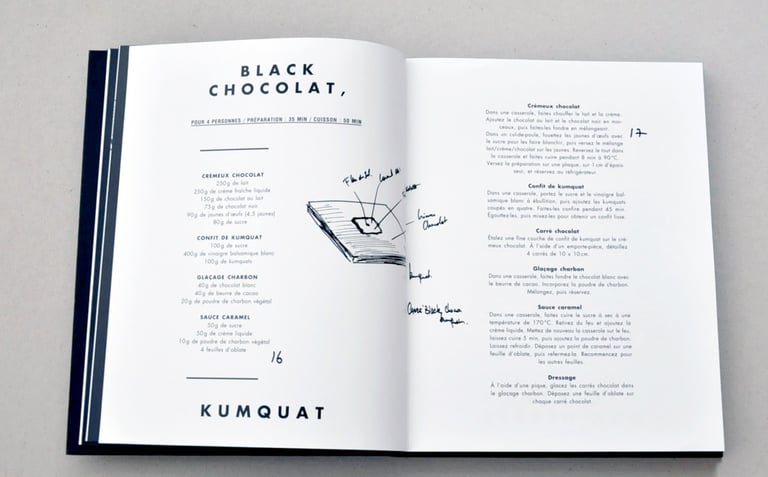 BLACK
CHOCOLAT,
POUR 4 PERSONNES / PRÉPARATION : 35 MIN / CUISSON : 50 MIN
CRÉMEUX CHOCOLAT
250g de lait
250g de crème fraîche liquide
150g de chocolat au lait
75g de chocolat noir
90g de jaunes d'œufs (4,5 jaunes)
80g de sucre
CONFIT DE KUMQUAT
100g de sucre
400g de vinaigre balsamique blanc
100g de kumquats
GLAÇAGE CHARBON
40g de chocolat blanc
40g de beurre de cacao
20g de poudre de charbon végétal
SAUCE CARAMEL
50g de sucre
50g de crème liquide
10g de poudre de charbon végétal
4 feuilles d'oblate
16
KUMQUAT
Crémeux
Chocolat
kumquat.
Carré Black, Choco
kumquat.
Crémeux chocolat
Dans une casserole, faites chauffer le lait et la crème.
Ajoutez le chocolat au lait et le chocolat noir en mor-
ceaux, puis faites-les fondre en mélangeant.
Dans un cul-de-poule, fouettez les jaunes d'œufs avec
le sucre pour les faire blanchir, puis versez le mélange
lait/crème/chocolat sur les jaunes. Reversez le tout dans
la casserole et faites cuire pendant 8 min à 90°C.
Versez la préparation sur une plaque, sur 1 cm d'épais-
seur, et réservez au réfrigérateur.
17
Confit de kumquat
Dans une casserole, portez le sucre et le vinaigre bal-
samique blanc à ébullition, puis ajoutez les kumquats
coupés en quatre. Faites-les confire pendant 45 min.
Égouttez-les, puis mixez-les pour obtenir un confit lisse.
Carré chocolat
Étalez une fine couche de confit de kumquat sur le cré-
meux chocolat. À l'aide d'un emporte-pièce, détaillez
4 carrés de 10 x 10 cm.
Glaçage charbon
Dans une casserole, faites fondre le chocolat blanc avec
le beurre de cacao. Incorporez la poudre de charbon.
Mélangez, puis réservez.
Sauce caramel
Dans une casserole, faites cuire le sucre à sec à une
température de 170°C. Retirez du feu et ajoutez la
crème liquide. Mettez de nouveau la casserole sur le feu,
laissez cuire 5 min, puis ajoutez la poudre de charbon.
Laissez refroidir. Déposez un point de caramel sur une
feuille d'oblate, puis refermez-la. Recommencez pour
les autres feuilles.
Dressage
À l'aide d'une pique, glacez les carrés chocolat dans
le glaçage charbon. Déposez une feuille d'oblate sur
chaque carré chocolat.